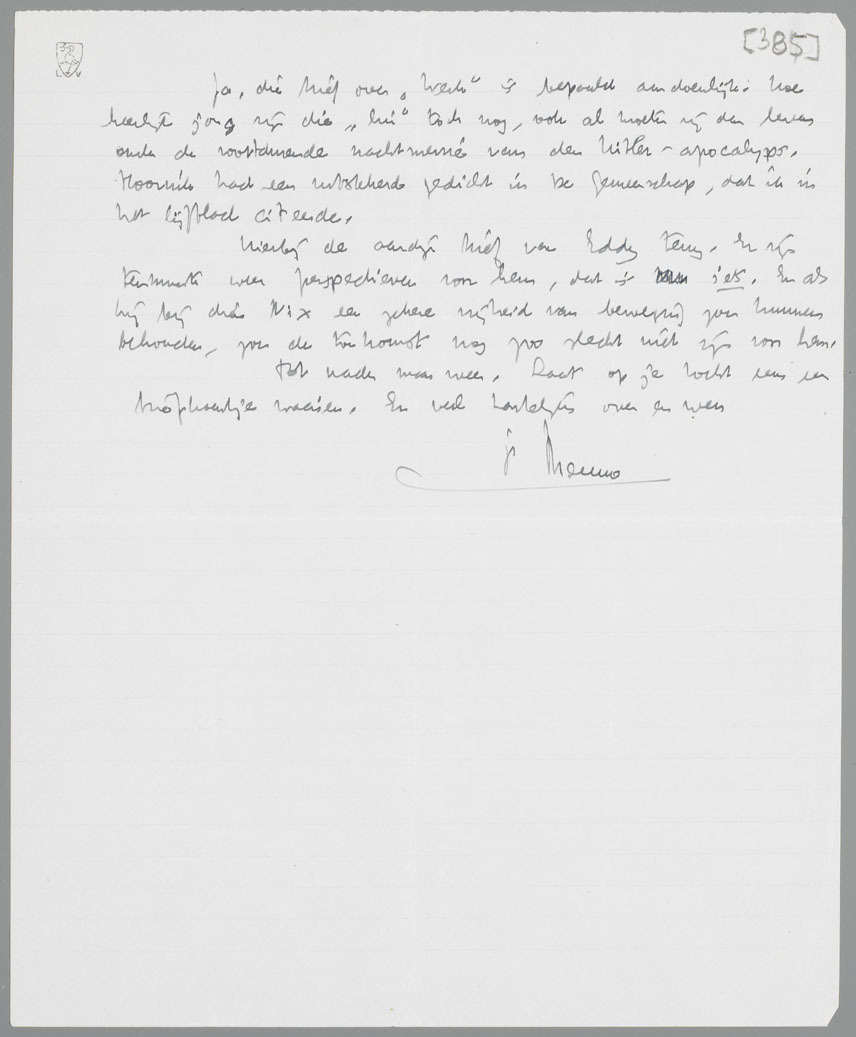 [385]
Ja, die brief over „Werk" is bepaald aandoenlijk: hoe
heerlijk jong zijn die „lui" toch nog, ook al moeten zij dan leven
onder de voortdurende nachtmerrie van den Hitler-apocalyps.
Hoornik had een uitstekend gedicht in De Gemeenschap, dat ik in
het lijfblad citeerde.
Hierbij de aardige brief van Eddy terug. Er zijn
tenminste weer perspectieven voor hem, dat is iets. En als
hij bij dien Nix een zekere vrijheid van beweging zou kunnen
behouden, zou de toekomst nog zoo slecht niet zijn voor hem.
Tot nader maar weer. Laat op je tocht eens een
briefkaartje waaien. En veel hartelijks over en weer
je Menno